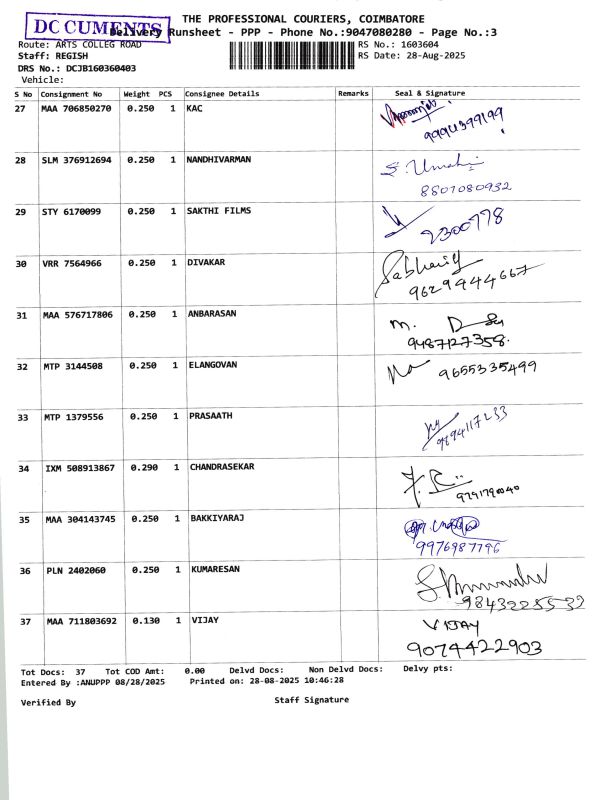 THE PROFESSIONAL COURIERS, COIMBATORE
DC CUMENTS
Delivery Runsheet - PPP - Phone No.:9047080280 - Page No.:3
Route: ARTS COLLEG ROAD RS No.: 1603604
Staff: REGISH RS Date: 28-Aug-2025
DRS No.: DCJB160360403
Vehicle:
S No Consignment No Weight PCS Consignee Details Remarks Seal & Signature
27 MAA 706850270 0.250 1 KAC
9994399199
28 SLM 376912694 0.250 1 NANDHIVARMAN S. Umahi
8807080932
29 STY 6170099 0.250 1 SAKTHI FILMS
2300778
30 VRR 7564966 0.250 1 DIVAKAR
9629944667
31 MAA 576717806 0.250 1 ANBARASAN M.
9487127358.
32 MTP 3144508 0.250 1 ELANGOVAN 9655335499
33 MTP 1379556 0.250 1 PRASAATH
9894117233
34 IXM 508913867 0.290 1 CHANDRASEKAR
9791790040
35 MAA 304143745 0.250 1 BAKKIYARAJ
9976987796
36 PLN 2402060 0.250 1 KUMARESAN
9843225532
37 MAA 711803692 0.130 1 VIJAY VIJAY
9074422903
Tot Docs: 37 Tot COD Amt: 0.00 Delvd Docs: Non Delvd Docs: Delvy pts:
Entered By :ANUPPP 08/28/2025 Printed on: 28-08-2025 10:46:28
Verified By Staff Signature